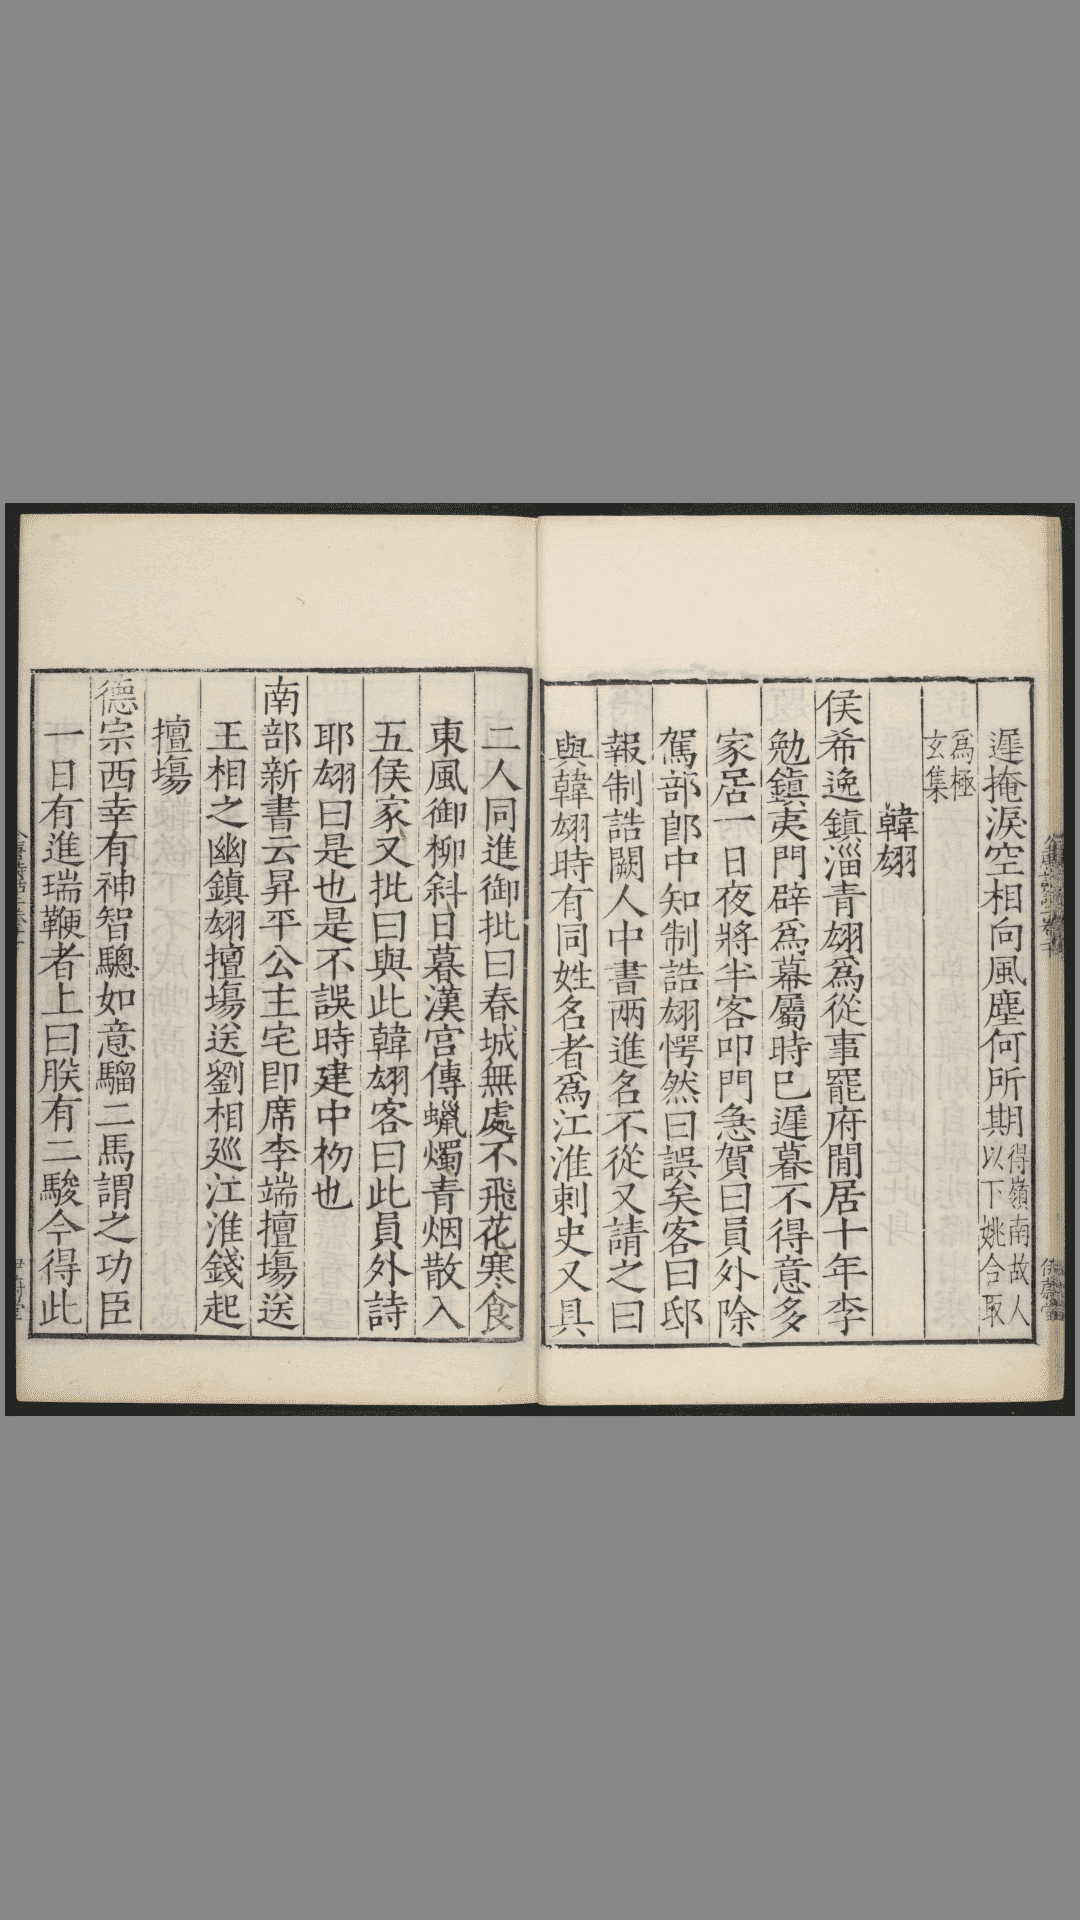 遲掩淚空相向風塵何所期得嶺南故人以下姚合取
爲極玄集
韓翃
侯希逸鎮淄青翃爲從事罷府閒居十年李
勉鎮夷門辟爲幕屬時已遲暮不得意多
家居一日夜將半客叩門急賀曰員外除
駕部郎中知制誥翃愕然曰誤矣客曰邸
報制誥闕人中書兩進名不從又請之曰
與韓翃時有同姓名者爲江淮刺史又具
二人同進御批曰春城無處不飛花寒食
東風御柳斜日暮漢宫傳蠟燭青烟散入
五侯家又批曰與此韓翃客曰此員外詩
耶翃曰是也是不誤時建中初也
南部新書云昇平公主宅即席李端擅塲送
王相之幽鎮翃擅塲送劉相廵江淮錢起
擅塲
德宗西幸有神智驄如意騮二馬謂之功臣
一日有進瑞鞭者上曰朕有二駿今得此